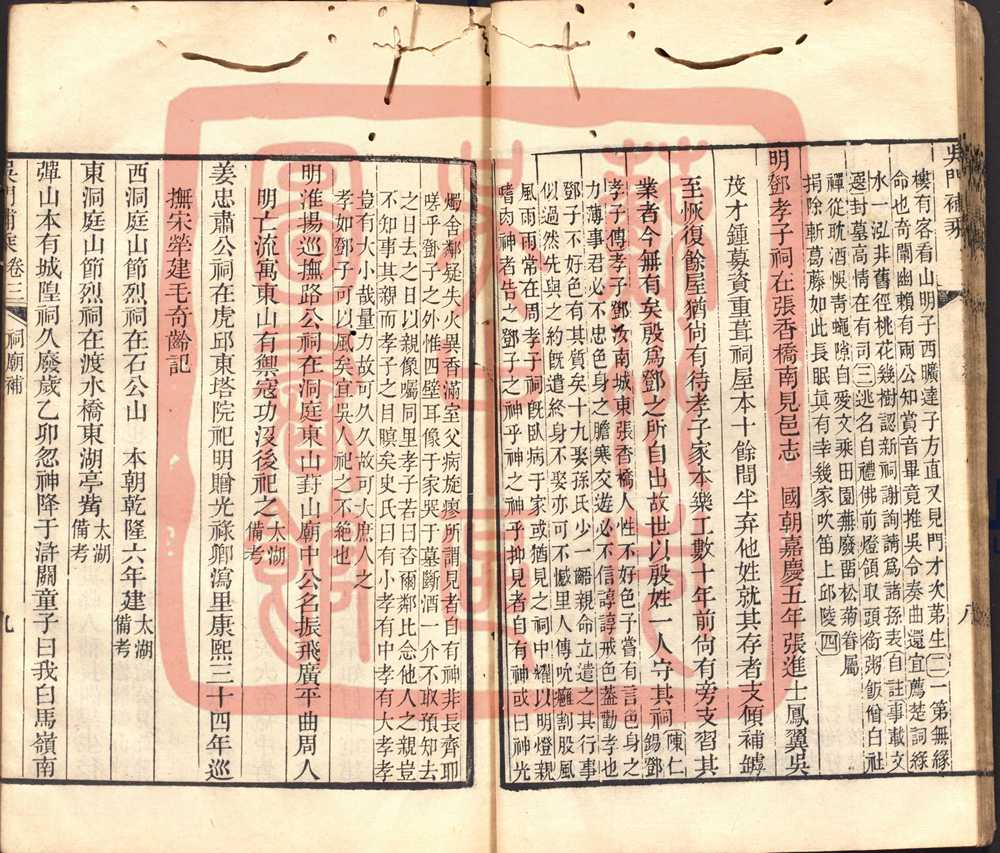 吳門補乘
八
樓有客看山明子西曠達子方直又見門才次第生二一第無緣
命也奇闡幽賴有兩公知賞音畢竟推吳令奏曲還宜薦楚詞綠
水一泓非舊徑桃花幾樹認新祠謝詢請為諸孫表自註事載文
選封墓高情在有司三逃名自禮佛前燈領取頭銜粥飯僧白社
禪從耽酒悞青蠅隙自愛文乘田園蕪廢畱松菊眷屬
捐除斬葛藤如此長眠真有幸幾家吹笛上邱陵四
明鄧孝子祠在張香橋南見邑志 國朝嘉慶五年張進士鳳翼吳
茂才鍾募資重葺祠屋本十餘間半弃他姓就其存者支傾補罅
至恢復餘屋猶尚有待孝子家本樂工數十年前尚有旁支習其
業者今無有矣殷為鄧之所自出故世以殷姓一人守其祠 陳仁錫鄧
孝子傳孝子鄧汝南城東張香橋人性不好色子嘗有言色身之
力薄事君必不忠色身之膽寒交遊必不信諄諄戒色葢勸孝也
鄧子不好色有其質矣十九娶孫氏少一齲親命立遣之其行事
似過然先與之約既遣終身不娶亦可不憾里人傳吮癰割股風
風雨雨常在周孝子祠既臥病于家或猶見之祠中燿以明燈親
嗜肉神者告之鄧子之神乎神之神乎抑見者自有神或曰神光
燭舍鄰疑失火異香滿室父病旋瘳所謂見者自有神非長齊耶
嗟乎鄧子之外惟四壁耳像于家哭于墓斷酒一介不取預知去
之日去之日以親像囑同里孝子若曰咨爾鄰比念他人之親豈
不知事其親而孝子之目瞑矣史氏曰有小孝有中孝有大孝孝
豈有大小哉量力故可久久故可大庶人之
孝如鄧子可以風矣宜吳人祀之不絕也
明淮揚巡撫路公祠在洞庭東山葑山廟中公名振飛廣平曲周人
明亡流寓東山有禦寇功沒後祀之 太湖備考
姜忠肅公祠在虎邱東塔院祀明贈光祿卿瀉里康熙三十四年巡
撫宋犖建毛奇齡記
西洞庭山節烈祠在石公山 本朝乾隆六年建 太湖備考
東洞庭山節烈祠在渡水橋東湖亭觜 太湖備考
彈山本有城隍祠久廢歲乙卯忽神降于滸關童子曰我白馬嶺南
吳門補乘 卷三 祠廟補
九